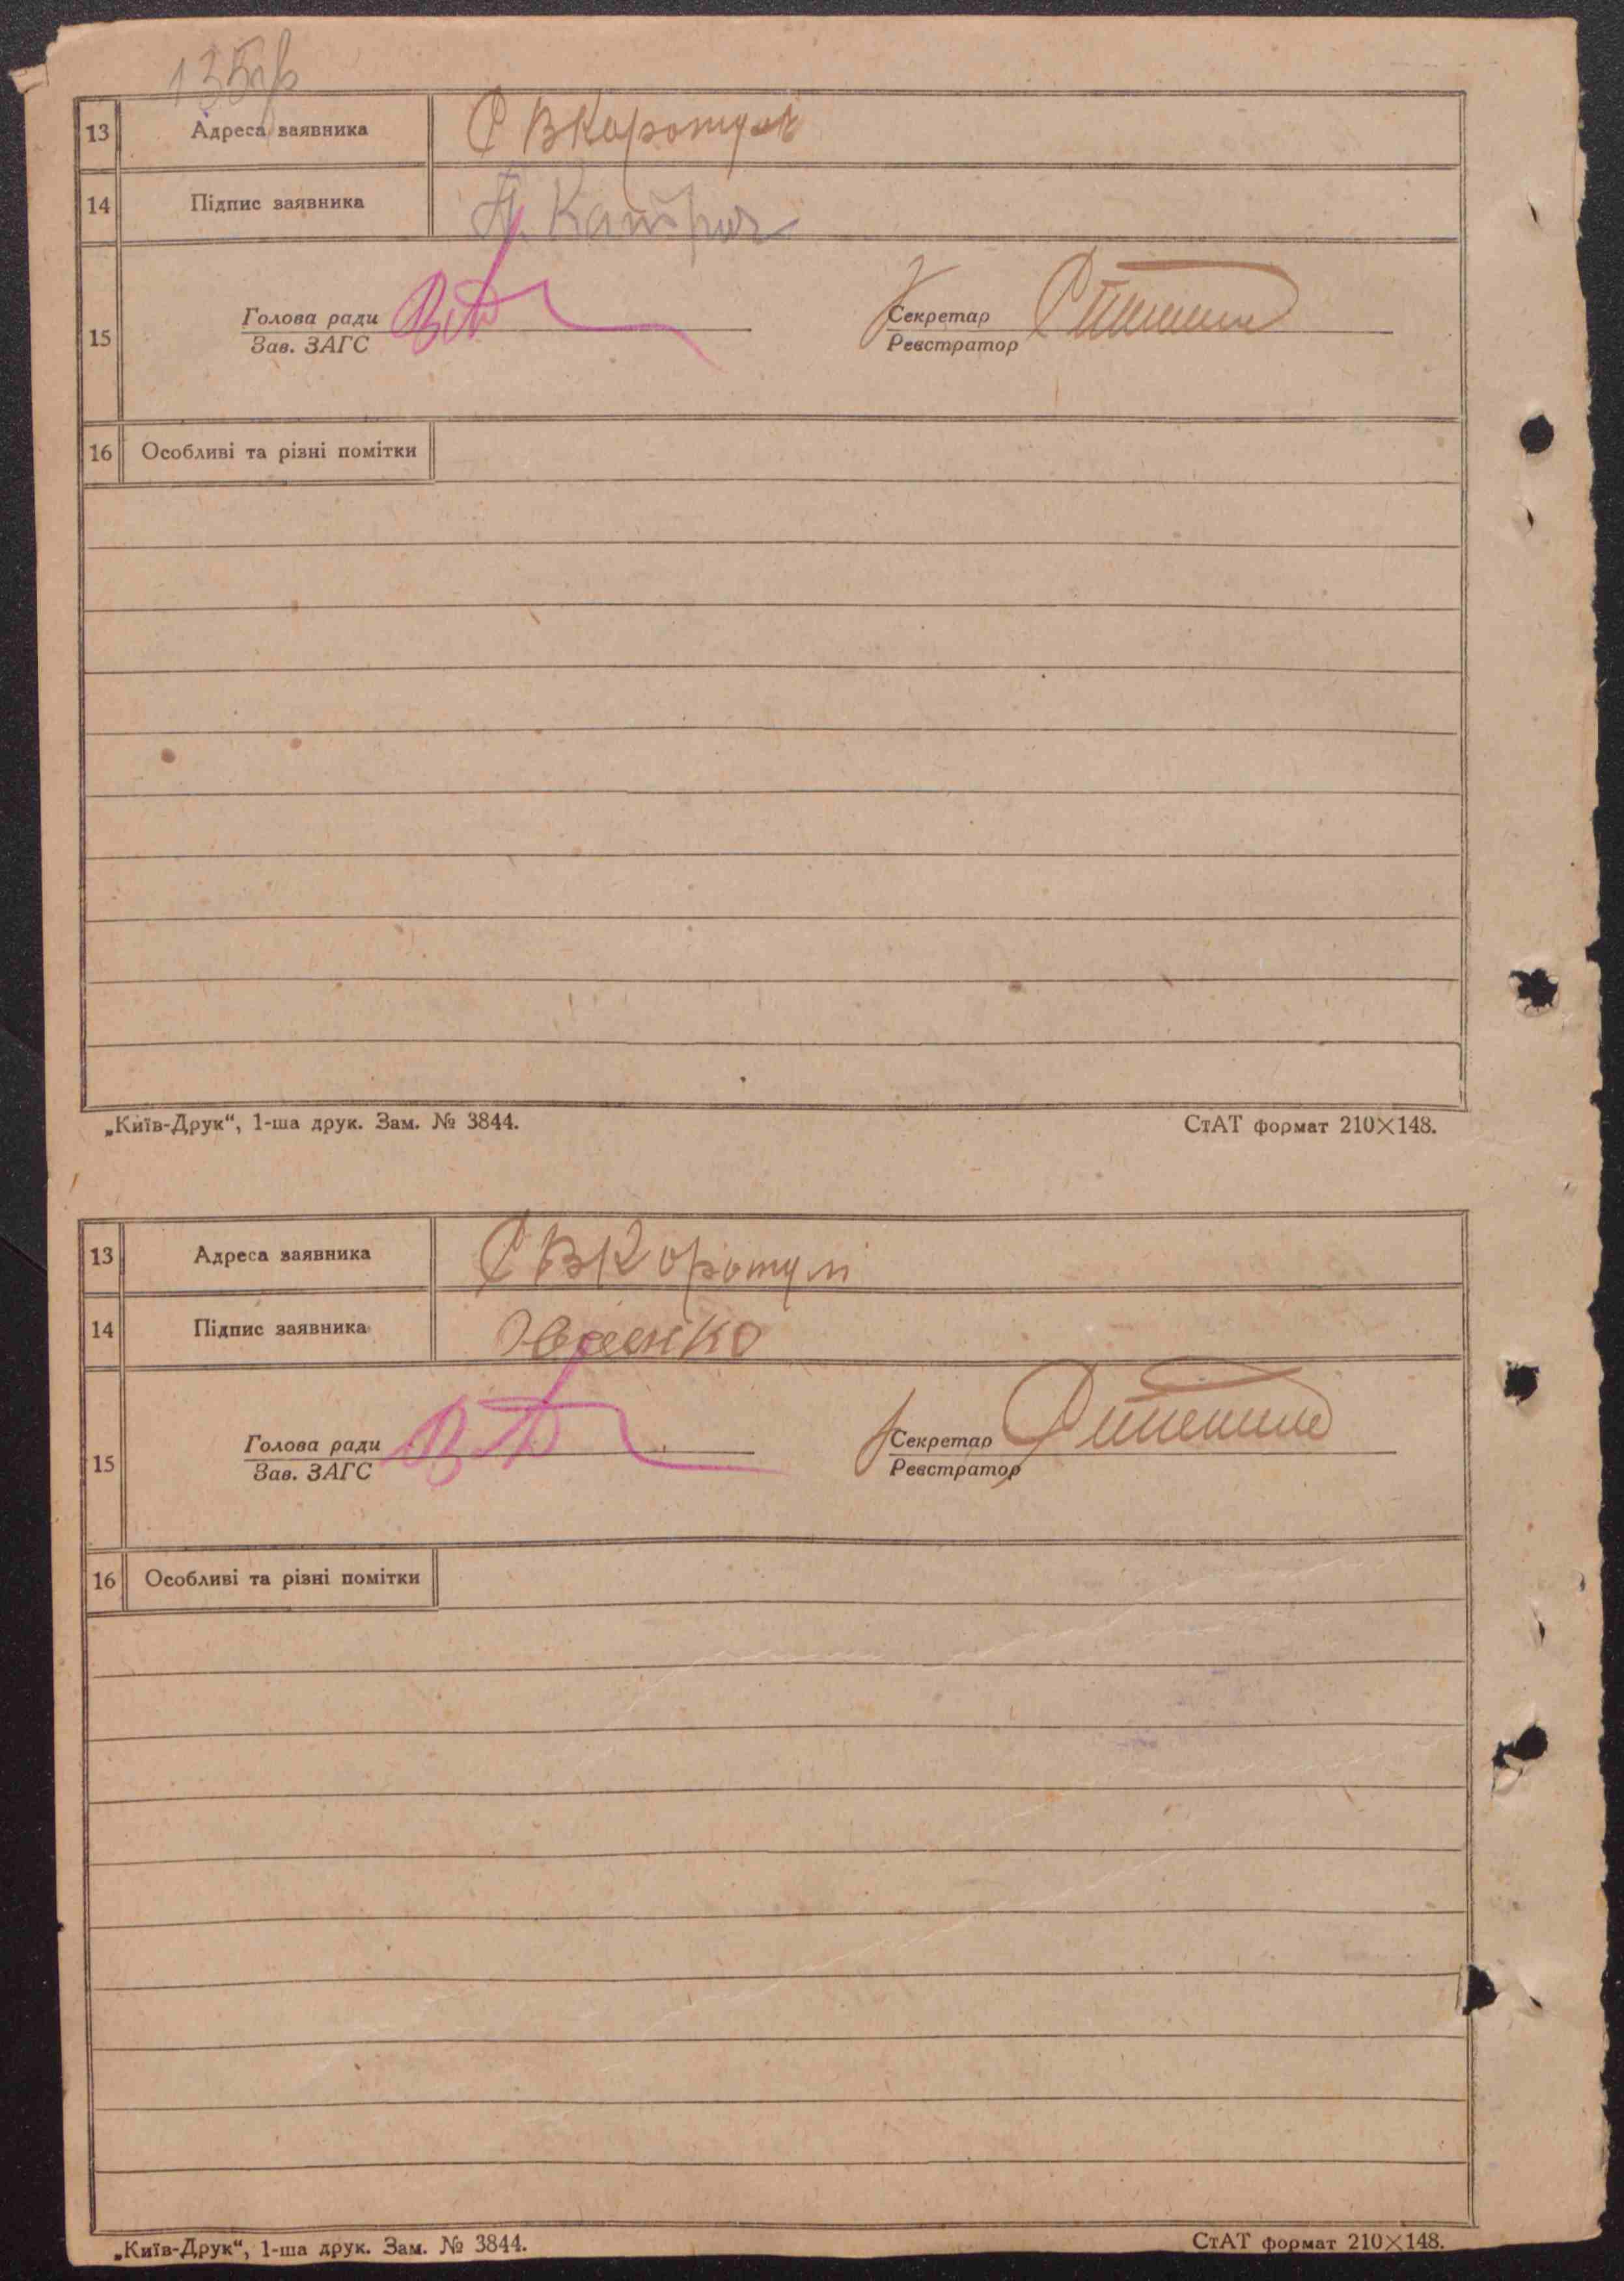 135зв
13 Адреса заявника С ВКоротул
14 Підпис заявника
15 Голова ради Секретар
Зав. ЗАГС Реєстратор
16 Особливі та різні помітки
„Київ-Друк“, 1-ша друк. Зам. № 3844. СтАТ формат 210×148.
13 Адреса заявника С ВКоротул
14 Підпис заявника
15 Голова ради Секретар
Зав. ЗАГС Реєстратор
16 Особливі та різні помітки
„Київ-Друк“, 1-ша друк. Зам. № 3844. СтАТ формат 210×148.